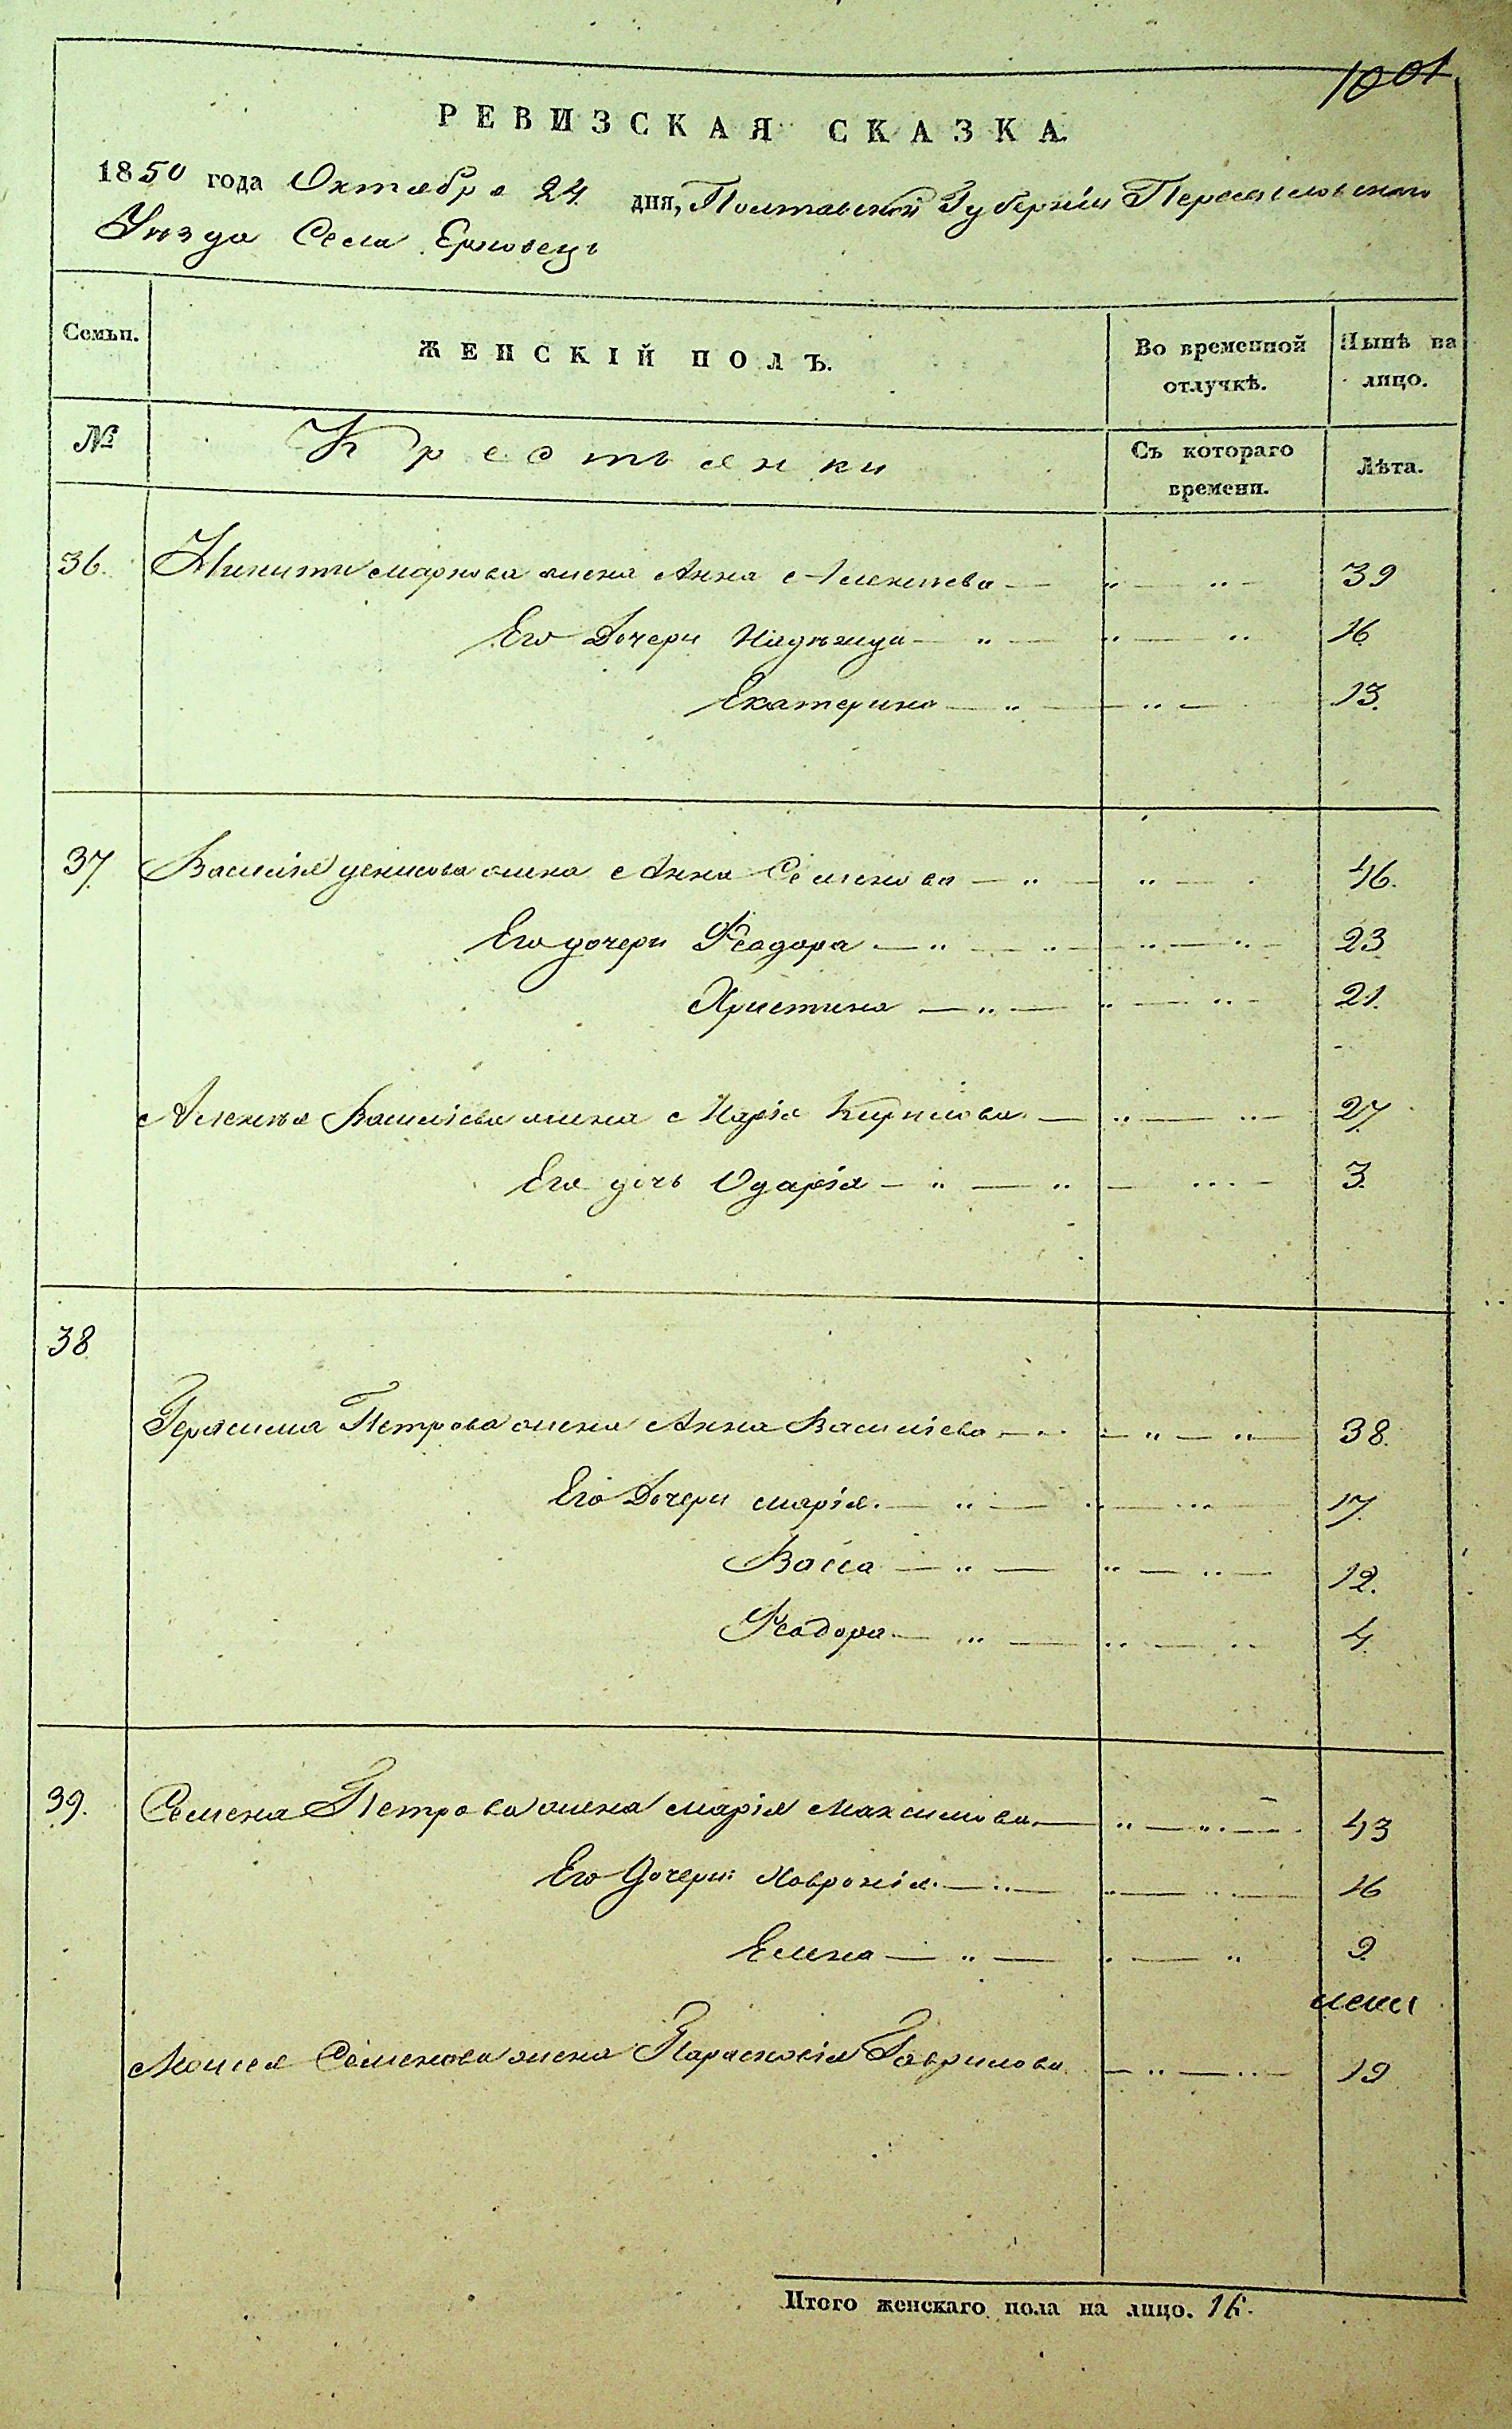 1001
РЕВИЗСКАЯ СКАЗКА
1850 года Октября 24 дня, Полтавской Губерніи Переяславскаго
Уѣзда Села Ерковецъ
Семьи. ЖЕНСКІЙ ПОЛЪ. Во временной отлучкѣ. Нынѣ на лицо.
№ Крестьянки Съ котораго времени. Лѣта.
36. Никиты Маркова жена Анна Алексѣева 39
Его Дочери Надѣжда 16
Екатерина 13.
37 Василія денисова жена Анна Семенова 46.
Его дочери Феодора 23
Христина 21.
Алексѣя Василіева жена Марія Кирилова 27
Его дочь Одарія 3.
38
Герасима Петрова жена Анна Василіева 38.
Его Дочери марія 17
Васса 12.
Феодора 4
39. Семена Петрова жена марія Максимова 43
Его Дочери Ховронія 16
Елена 9
Моисея Семенова жена Параскевія Гаврилова 19
Итого женскаго пола на лицо.